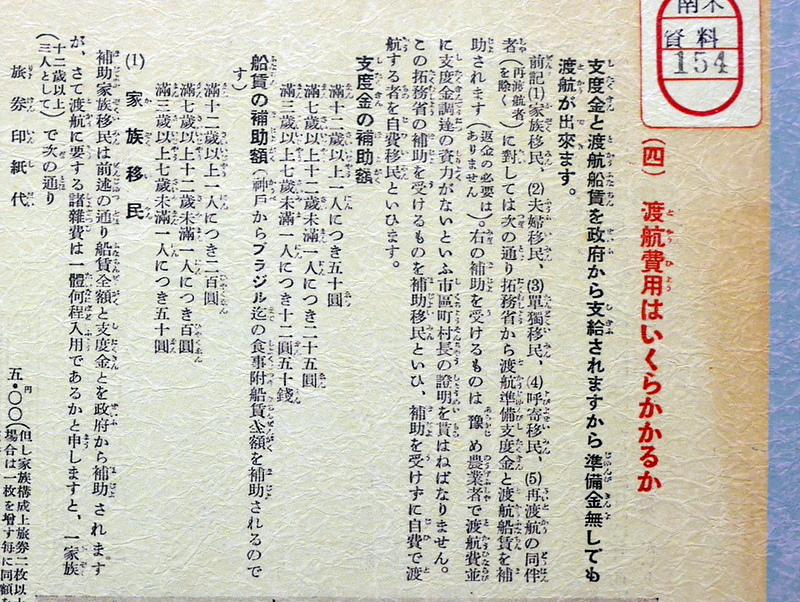 南米
資料
154
(四) 渡航費用はいくらかかるか
支度金と渡航船賃を政府から支給されますから準備金無しでも
渡航が出來ます。
前記(1)家族移民、(2)夫婦移民、(3)單獨移民、(4)呼寄移民、(5)再渡航の同伴
者(再渡航者を除く)に對しては次の通り拓務省から渡航準備支度金と渡航船賃を補
助されます(返金の必要はありません)。右の補助を受けるものは豫め農業者で渡航費並
に支度金調達の資力がないといふ市區町村長の證明を貰はねばなりません。
この拓務省の補助を受けるものを補助移民といひ、補助を受けずに自費で渡
航する者を自費移民といひます。
支度金の補助額
滿十二歲以上一人につき五十圓
滿七歲以上十二歲未滿一人につき二十五圓
滿三歲以上七歲未滿一人につき十二圓五十錢
船賃の補助額(神戶からブラジル迄の食事附船賃全額を補助されるので
す)
滿十二歲以上一人につき二百圓
滿七歲以上十二歲未滿一人につき百圓
滿三歲以上七歲未滿一人につき五十圓
(1) 家族移民
補助家族移民は前述の通り船賃全額と支度金とを政府から補助されます
が、さて渡航に要する諸雜費は一體何程入用であるかと申しますと、一家族
(十二歲以上三人として)で次の通り
旅券印紙代 五・〇〇圓(但し家族構成上旅券二枚以上
場合は一枚を增す每に同額を